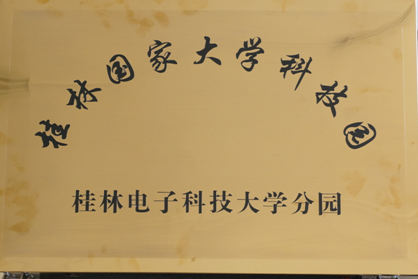 桂林国家大学科技园
桂林电子科技大学分园